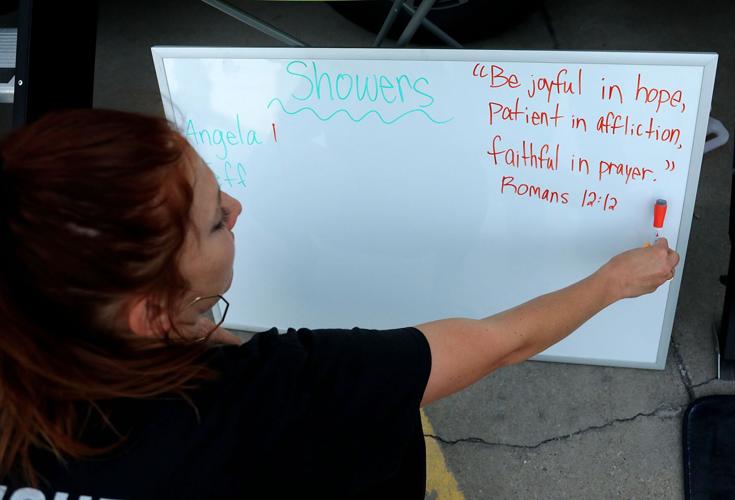 Showers
Angela 1
"Be joyful in hope,
Patient in affliction,
faithful in prayer."
Romans 12:12